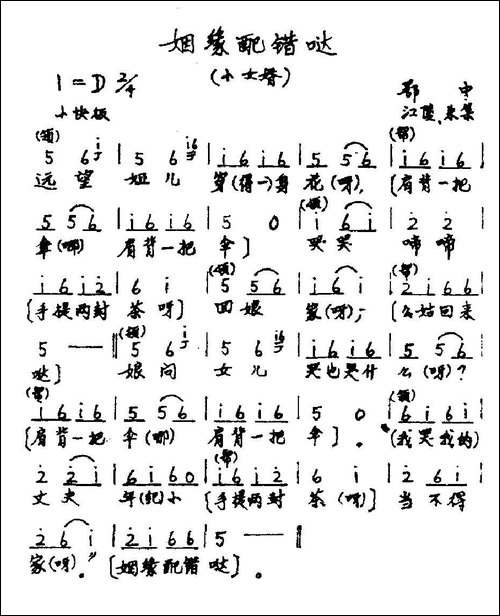 姻缘配错哒
(小女婿)
1=D 2/4 鄂中
小快板 江陵、采集
(领) (帮)
5 6 i | 5 6 i6 | i 6 i 6 | 5 5 6 | i 6 i 6 |
远望 姐儿 穿(得一)身 花(呀), [肩背一把
(领)
5 5 6 | i 6 i 6 | 5 0 | i 6 i | 2 2 |
伞(哪) 肩背一把 伞] 哭哭 啼啼
(领) (帮)
i 6 i 2 | 6 i | 5 5 6 | i 6 i | 2 i 6 6 |
[手提两封 茶呀] 回娘 家(呀); [么姑回来
(领)
5 — ‖ 5 6 i | 5 6 i6 | i 6 i 6 | 5 5 6 |
哒] 娘问 女儿 哭也哭什 么(呀)?
(帮) (领)
i 6 i 6 | 5 5 6 | i 6 i 6 | 5 0 | 6 i 6 i |
[肩背一把 伞(哪) 肩背一把 伞]。 “(我哭我的)
(帮)
2 2 i | 6 i 6 0 | i 6 i 2 | 6 i | 2 6 i |
丈夫 年(纪)小 [手提两封 茶(呀)] 当不得
2 6 i | 2 i 6 6 | 5 — ‖
家(呀)。” [姻缘配错 哒]。